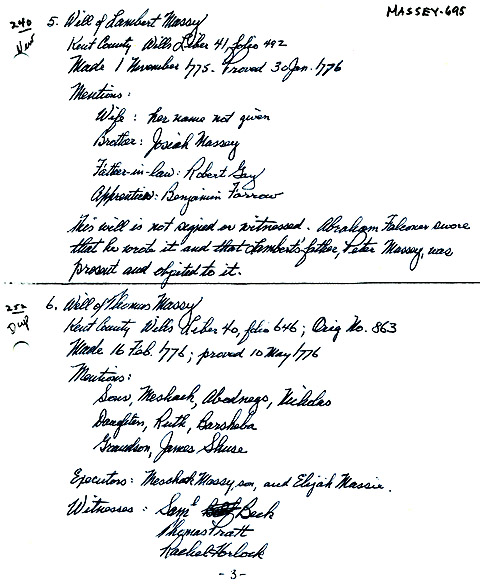 MASSEY-695
240 5. Will of Lambert Massey
New Kent County Wills Liber 41, folio 492
Made 1 November 1775. Proved 30 Jan. 1776
Mentions:
Wife: her name not given
Brother: Josiah Massey
Father-in-law: Robert Gay
Apprentice: Benjamin Farrow
This will is not signed or witnessed. Abraham Falconer swore
that he wrote it and that Lambert's father, Peter Massey, was
present and objected to it.
252 6. Will of Thomas Massy
Dup Kent County Wills Liber 40, folio 646; Orig No. 863
Made 16 Feb. 1776; proved 10 May 1776
Mentions:
Sons, Meshack, Abednego, Nicholas
Daughters, Ruth, Barsheba
Grandson, James Shuse
Executors: Meschak Massy, son, and Elijah Massie.
Witnesses: Saml Beck
Thomas Pratt
Rachel Horlock
-3-